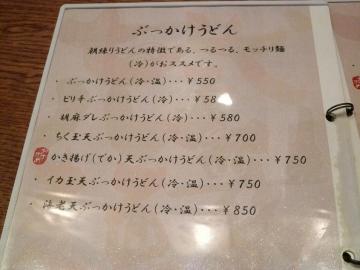 ぶっかけうどん
朝練りうどんの特徴である、つるつる、モッチリ麺
(冷)がおススメです。
・ ぶっかけうどん(冷・温)・・・¥550
・ ピリ辛ぶっかけうどん(冷)・・・¥580
・ 胡麻ダレぶっかけうどん(冷)・・・¥580
・ ちく玉天ぶっかけうどん(冷・温)・・・¥700
かき揚げ(でか)天ぶっかけうどん(冷・温)・・・¥750
・ イカ玉天ぶっかけうどん(冷・温)・・・¥750
・ 海老天ぶっかけうどん(冷・温)・・・¥850